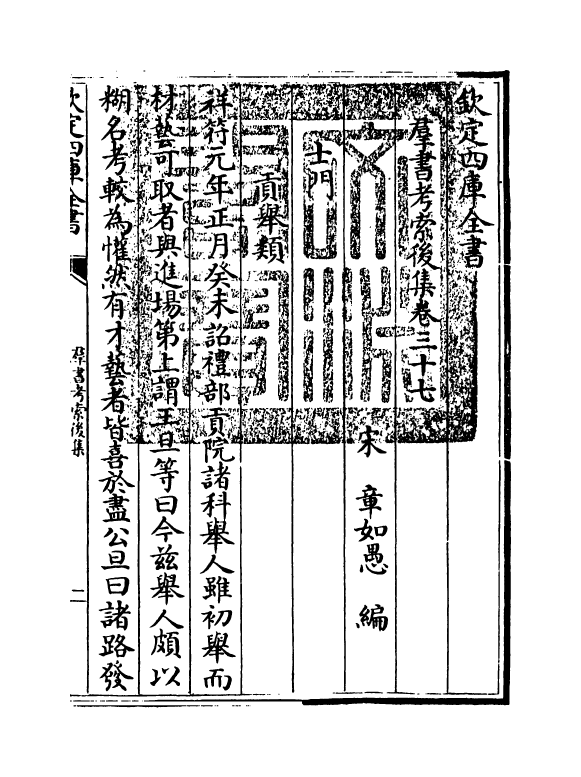 欽定四庫全書
羣書考索後集卷三十七
宋 章如愚 編
士門
貢舉類
祥符元年正月癸未詔禮部貢院諸科舉人雖初舉而
材藝可取者與進場第上謂王旦等曰今兹舉人頗以
糊名考較為懼然有才藝者皆喜於盡公旦曰諸路發
欽定四庫全書
羣書考索後集
二